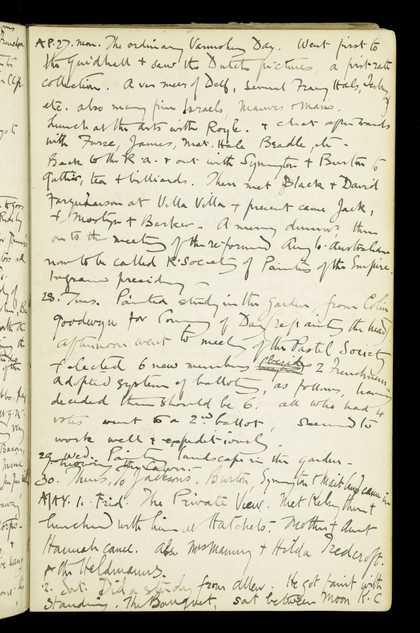 AP. 27. Mon. The ordinary Varnishing Day. Went first to
the Guildhall & saw the Dutch pictures, a first rate
collection. A ver meer of Delf, several Franz Hals,
etc. also many fine Israels Mauves & Maris.
Lunch at the Arts with Royle. & chat afterwards
with Furse, James, Mat. Hale Beadle, etc.
Back to the R.A. & out with Symington & Burton to
Gatti's, tea & billiards. Then met Black & David
Farquharson at Villa Villa & present came Jack,
& Mostyn & Barker. A merry dinner, then
on to the meeting of the reformed Anglo-Australian
now to be called R. Society of Painters of the Empire.
Ingram presiding
28. Tues. Painted study in the garden, from Colin
Goodwyn for Coming of Day repainting the head
afternoon went to meeting of the Pastel Society
& elected 6 new members 2 Frenchmen
adopted system of balloting, as follows, having
decided there should be 6. all who had 4
votes went to a 2nd ballot, seemed to
work well & expeditiously.
29. Wed. Painting landscape in the garden.
30. Thurs. to Jacksons. Burton, Symington & came in
MAY. 1. Frid. The Private View. Met &
lunched with him at Hatchets. Mother & Aunt
Hannah came. Also Mrs Manning & Hilda Tredcroft.
& the Weldmanns.
2. Sat. Did a study from Allen. He got faint with
standing. The Banquet, sat between Moon K.C